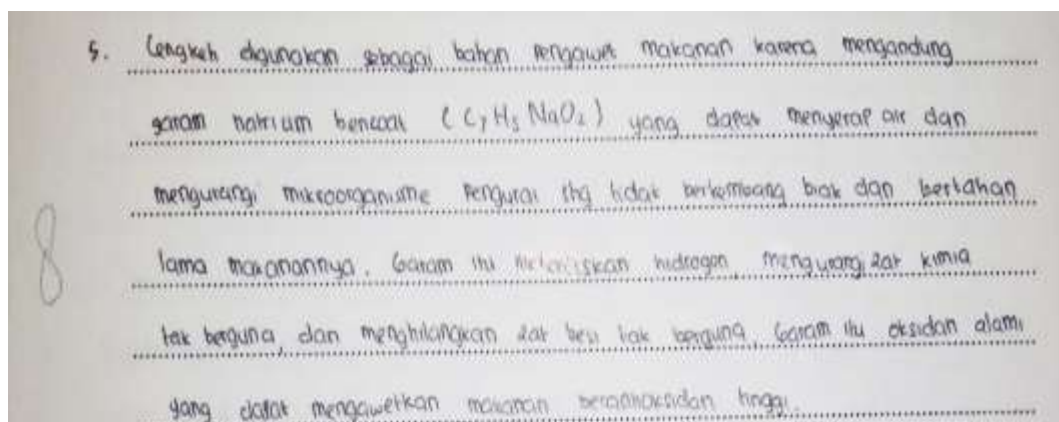 5. Cengkeh digunakan sebagai bahan pengawet makanan karena mengandung
garam natrium benzoat (C7H5NaO2) yang dapat menyerap air dan
mengurangi mikroorganisme pengurai shg tidak berkembang biak dan bertahan
8
lama makanannya. Garam itu hidrogen, mengurangi zat kimia
tak berguna, dan menghilangkan zat besi tak berguna. Garam itu oksidan alami
yang dapat mengawetkan makanan berantioksidan tinggi.